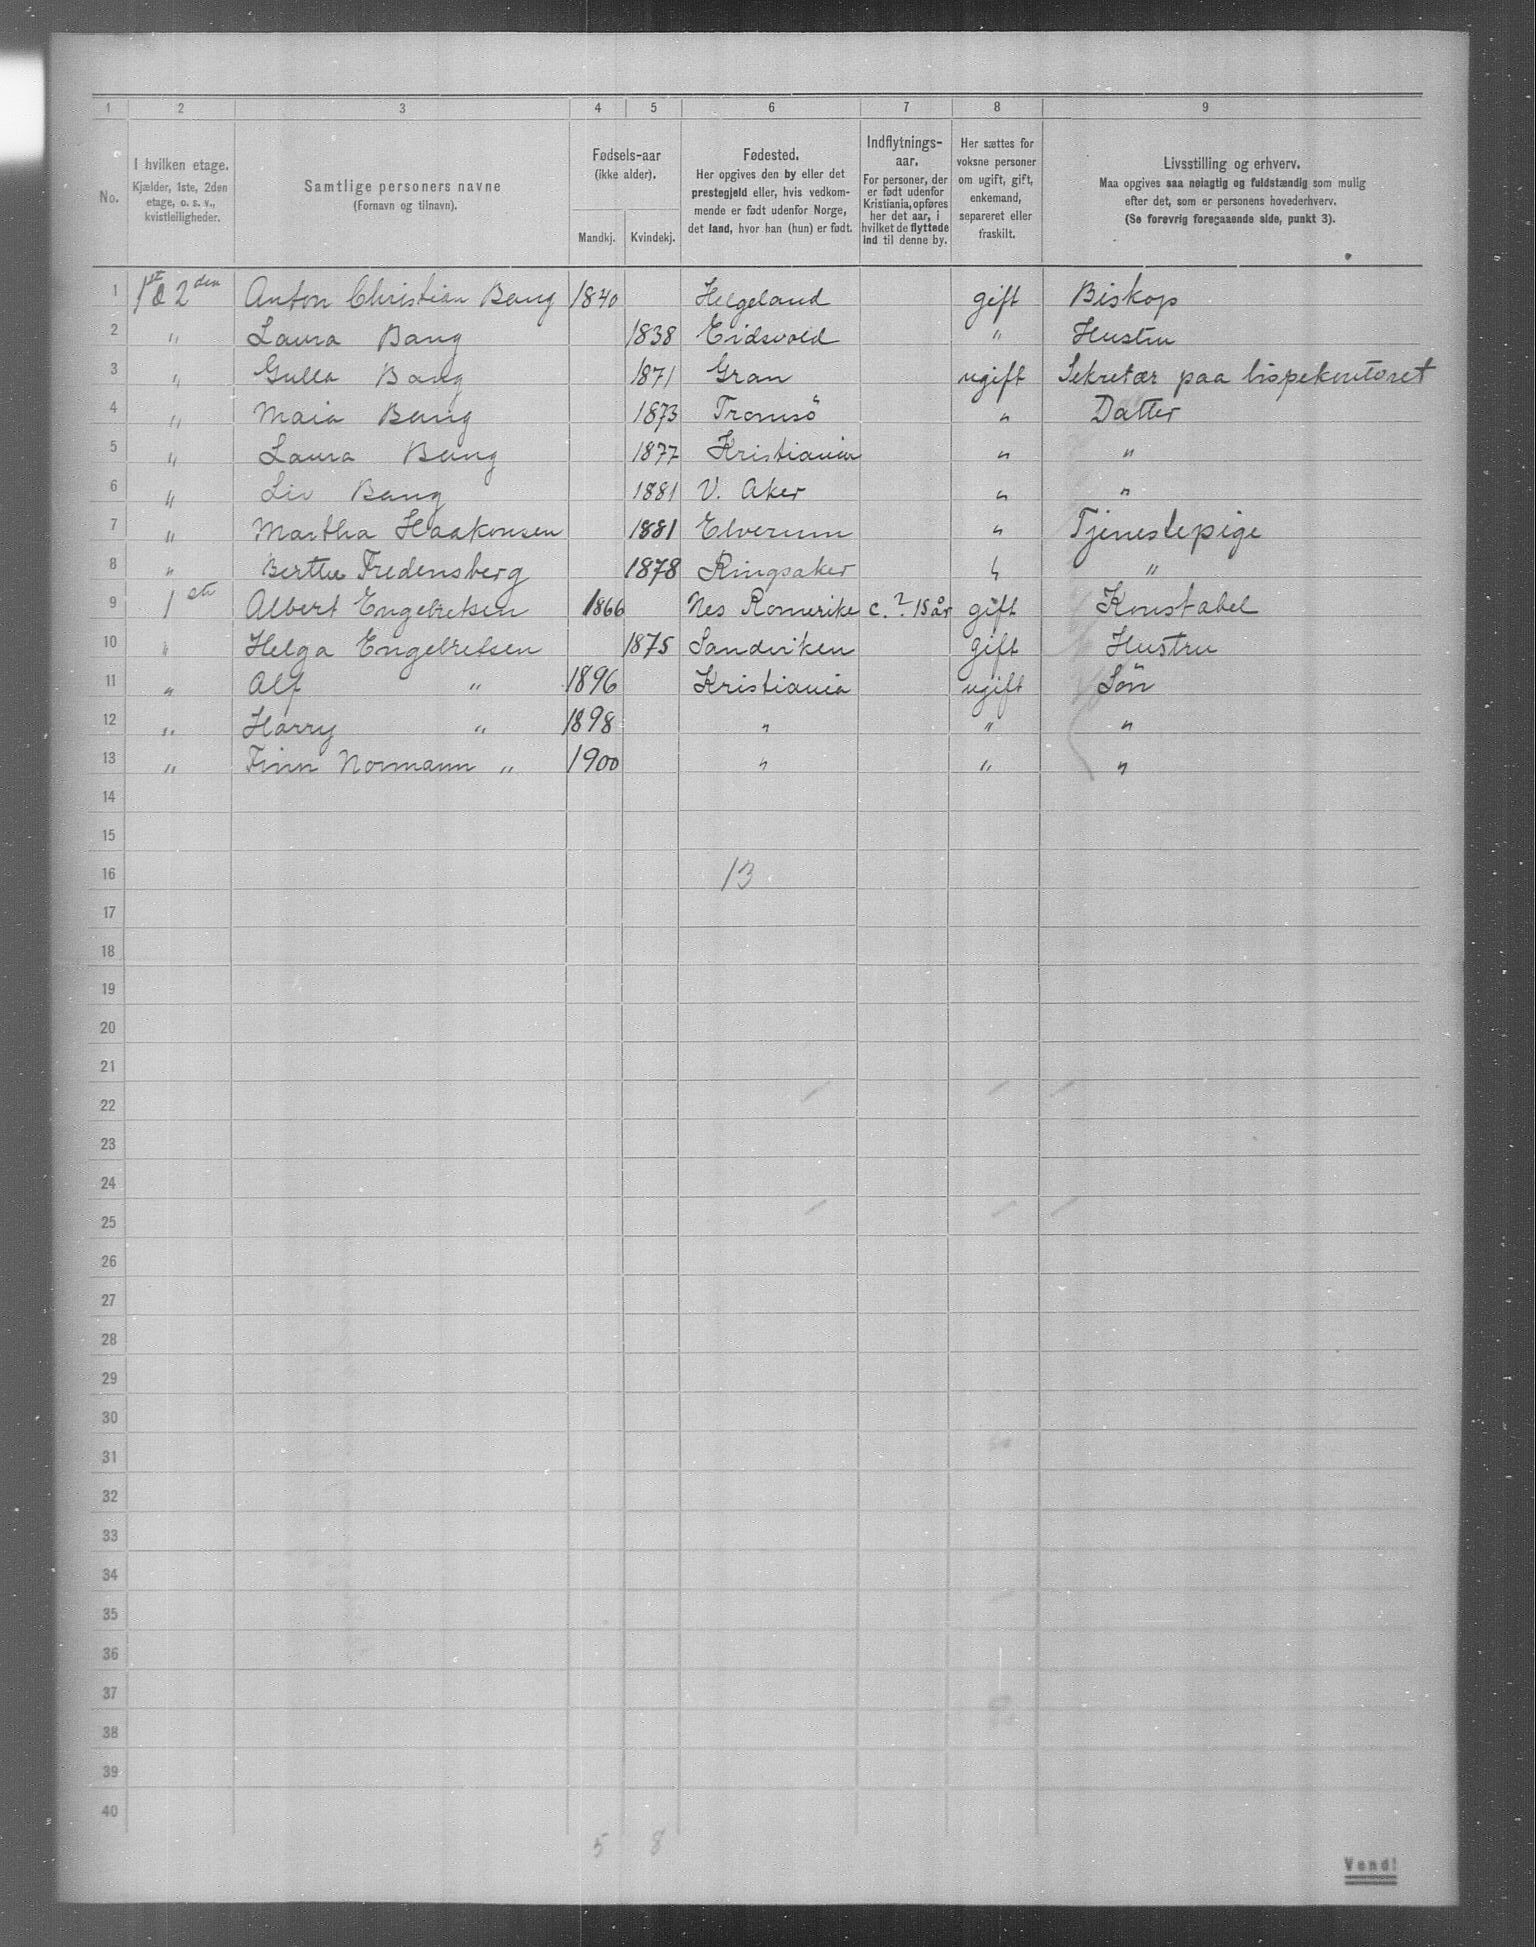 1 2 3 4 5 6 7 8 9
No. I hvilken etage. Kjælder, 1ste, 2den etage, o. s. v., kvistleiligheder. Samtlige personers navne (Fornavn og tilnavn). Fødsels-aar (ikke alder). Mandkj. Kvindekj. Fødested. Her opgives den by eller det prestegjeld eller, hvis vedkommende er født udenfor Norge, det land, hvor han (hun) er født. Indflytnings-aar. For personer, der er født udenfor Kristiania, opføres her det aar, i hvilket de flyttede ind til denne by. Her sættes for voksne personer om ugift, gift, enkemand, separeret eller fraskilt. Livsstilling og erhverv. Maa opgives saa nøiagtig og fuldstændig som mulig efter det, som er personens hovederhverv. (Se forøvrig foregaaende side, punkt 3).
1 1st & 2den Anton Christian Bang 1840 Helgeland gift Biskop
2 " Laura Bang 1838 Eidsvold " Hustru
3 " Gulla Bang 1871 Gran ugift Sekretær paa bispekontoret
4 " Maia Bang 1873 Tromsö " Datter
5 " Laura Bang 1877 Kristiania " "
6 " Liv Bang 1881 V. Aker " "
7 " Martha Haakonsen 1881 Elverum " Tjenestepige
8 " Berthe Fredensberg 1878 Ringsaker " "
9 1ste Albert Engebretsen 1866 Nes Romerike c. ? 15 år gift Konstabel
10 " Helga Engebretsen 1875 Sandviken gift Hustru
11 " Alf " 1896 Kristiania ugift Sön
12 " Harry " 1898 " " "
13 " Finn Normann " 1900 " " "
14
15
16 13
17
18
19
20
21
22
23
24
25
26
27
28
29
30
31
32
33
34
35
36
37
38
39
40
5 8
Vend!